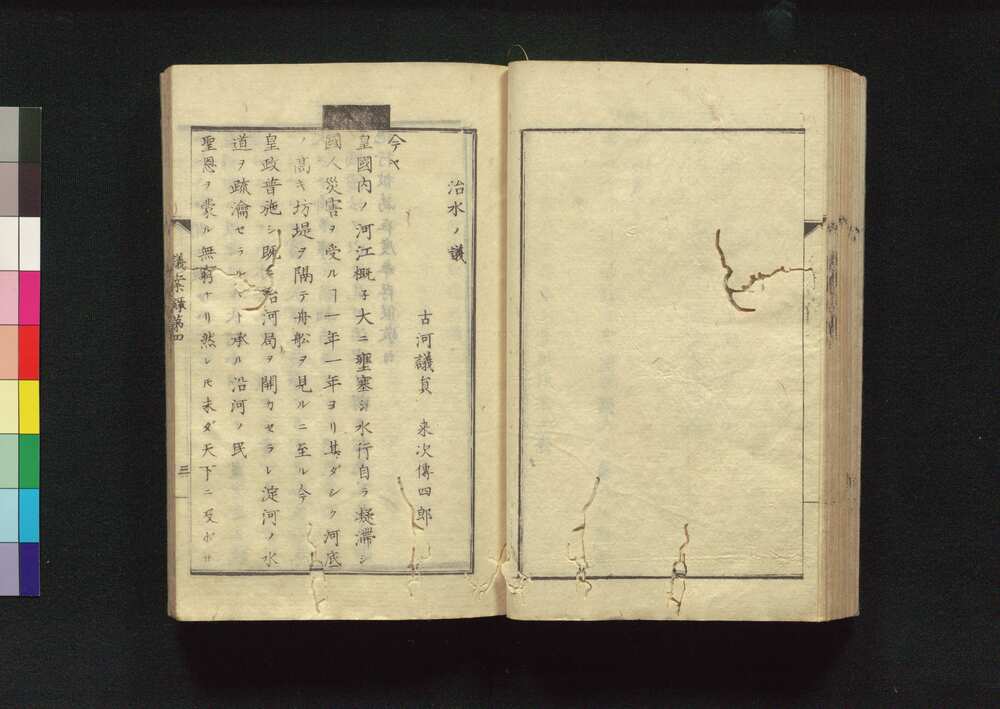 治水ノ議
古河議員 来次傳四郎
今ヤ
皇國内ノ河江概子大ニ壅塞シ水行自ラ凝滯シ
國人災害ヲ受ルヿ一年一年ヨリ甚ダシク河底
ノ高キ坊堤ヲ隔テ舟船ヲ見ルニ至ル今
皇政普施シ既ニ治河局ヲ開カセラレ淀河ノ水
道ヲ疏瀹セラル承ル沿河ノ民
聖恩ヲ蒙ル無窮ナリ然レ𪜈未ダ天下ニ及ボサ
議案録第四
三